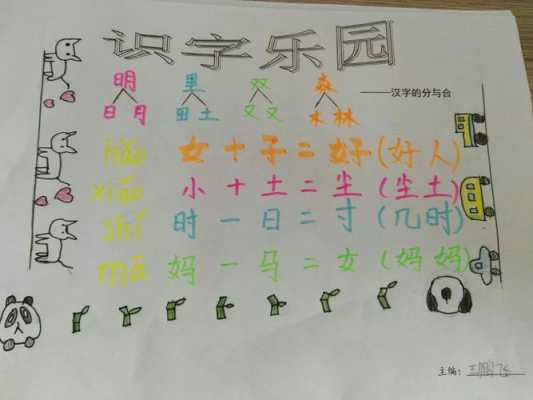 识字乐园
明 里 双 森
——汉字的分与合
日月 田土 又又 木林
hǎo 女+子=好(好人)
xiǎo 小+土=尘(尘土)
shí 时-日=寸(几时)
mā 妈-马=女(妈妈)
主编:王鹏飞